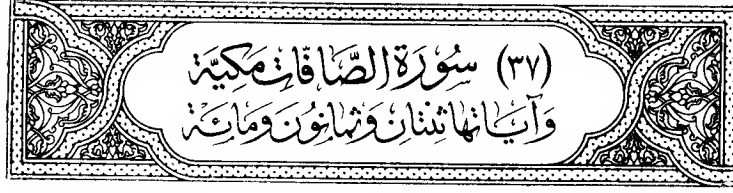 (٣٧) سُورَةُ الصَّافَّاتِ مَكِيَّةٌ
وَآيَاتُهَا ثِنْتَانِ وَثَمَانُونَ وَمِائَةٌ